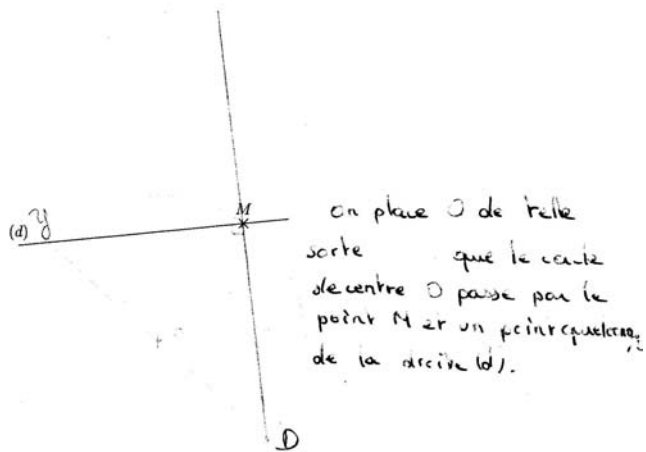 M
(d) y
on place O de telle
sorte que le cercle
de centre O passe par le
point M et un point quelconque
de la droite (d).
D